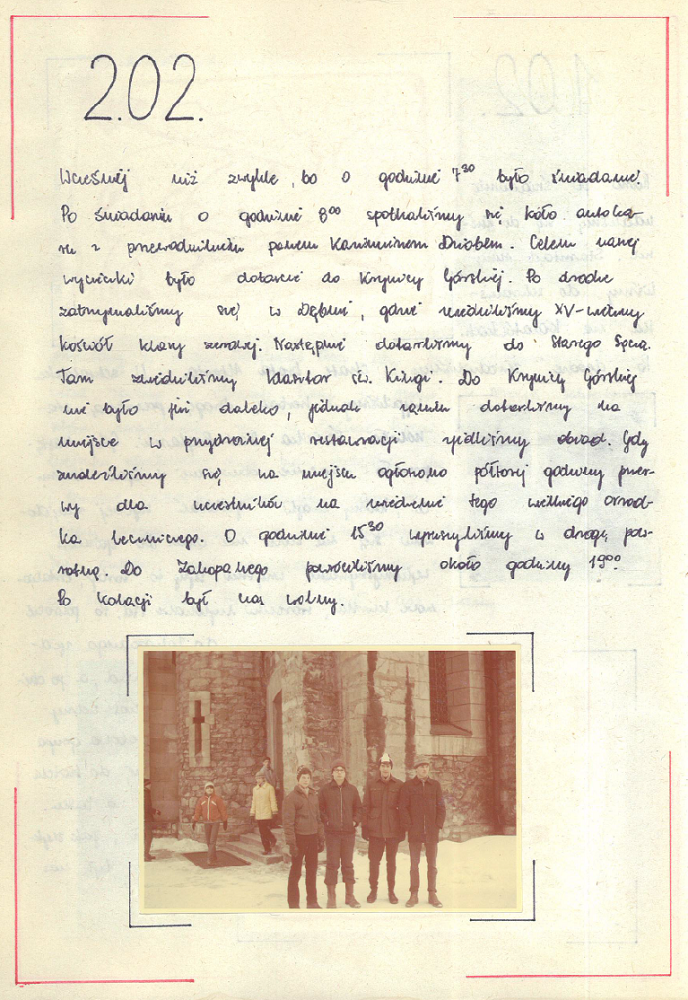 2.02.
Wcześniej niż zwykle, bo o godzinie 7³⁰ było śniadanie.
Po śniadaniu o godzinie 8⁰⁰ spotkaliśmy się koło autoka-
ru z przewodnikiem panem Kazimierzem Dziobem. Celem naszej
wycieczki było dotarcie do Krynicy Górskiej. Po drodze
zatrzymaliśmy się w Dębnie, gdzie zwiedziliśmy XV-wieczny
kościół klasy zerowej. Następnie dotarliśmy do Starego Sącza.
Tam zwiedziliśmy klasztor św. Kingi. Do Krynicy Górskiej
nie było już daleko, jednak zanim dotarliśmy na
miejsce w przydrożnej restauracji zjedliśmy obiad. Gdy
znaleźliśmy się na miejscu ogłoszono półtorej godziny przer-
wy dla uczestników na zwiedzenie tego wielkiego ośrod-
ka leczniczego. O godzinie 15³⁰ wyruszyliśmy w drogę pow-
rotną. Do Zakopanego powróciliśmy około godziny 19⁰⁰.
Po kolacji był czas wolny.